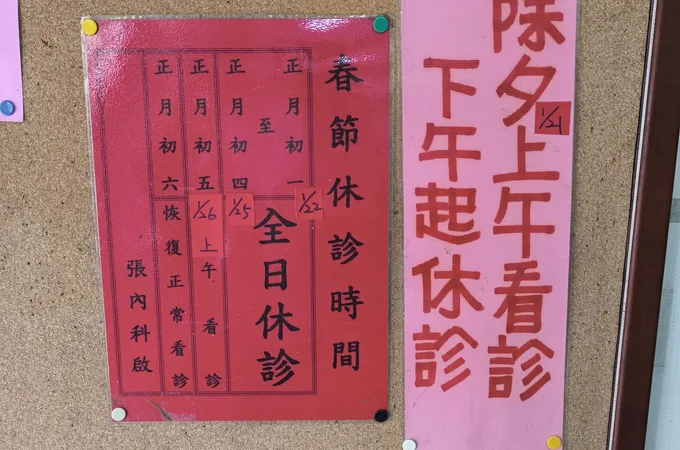 除夕上午看診
1/21
下午起休診
春節休診時間
正月初一
1/22
至
正月初四
1/25
全日休診
正月初五
1/26
上午看診
正月初六
恢復正常看診
張內科啟